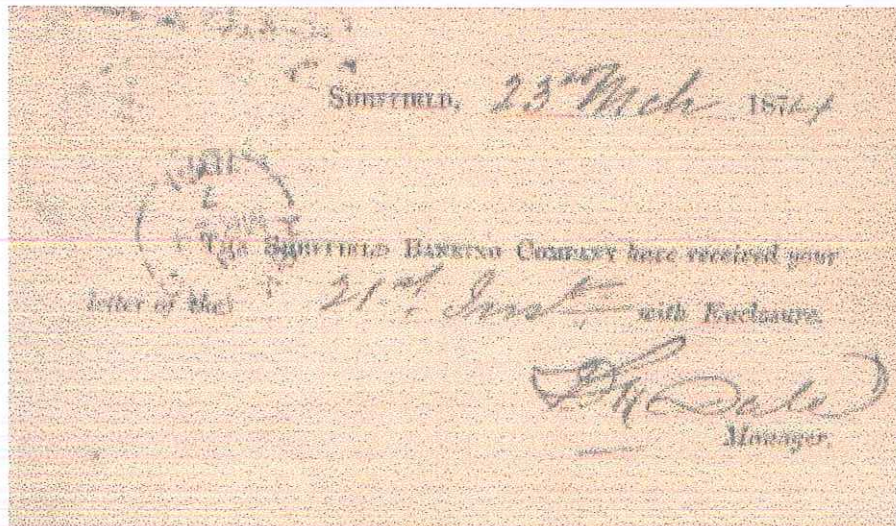 SHEFFIELD, 23rd Mch 1874
THE SHEFFIELD BANKING COMPANY have received your
letter of the 21st Inst with Enclosure.
Dale
Manager.